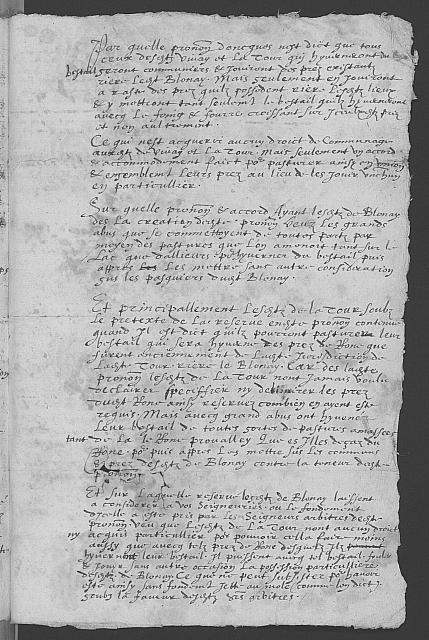 Par quelle pronon doncques n'est dict que tous
ceux desdz Vivay et La Tour qui hyverneront du
bestail seront communiers & Jouiront des prez existantz
riere Lesdz Blonay. Mais seulement en Jouiront
a raste des prez quilz possedent riere Lesdz lieux
& y mettront tant seulement le bestail quilz hyverneront
avecq le foing & fourre croissant sur Iceulx prez
et non aultrement.
Ce qui n'est acquerir aucun droit de Communage
de Vivay et La Tour. Mais seulement un accord
& accommodement faict po pasturer ainsy en union
& ensemblent Leurs prez au lieu de les Jouir un chun
en particullier.
Sur quelle pronon & accord Ayant lesdz de Blonay
des La creation diste pronon veuz Les grands
abus que se commettoyent de toutes partz par
moyen des pastures que Lon amenoit tant sur le
Lac que dallieurs po hyverner du bestail puis
appres Les mettre sans autre consideration
sus les pasquiers dudit Blonay.
Et principallement Lesdz de la Tour, soubz
le pretexte de La reserve en pronon contenue
quand Il est dict quilz pourront pasturer leur
bestail qui sera hyverné des prez de Rone que
furent anciennement de Jurisdiction de
La Tour riere le Blonay. Car des
pronon lesdz de La Tour nont Jamais voulu
esclairer speciffier ny delimiter les prez
dudit Rone ainsy reservez combien en ayent esté
requis. Mais avecq grand abus ont hyverné
Leur bestail de toutes sortes de pastures amassees
tant de La le Rone provalley Que es Illes deça du
Rone po puis appres Les mettre sus les communs
& prez desdz de Blonay contre la teneur deste
pronon.
Et sur Laquelle reserve lesdz de Blonay laissent
a considerer a vos Seigneuries ou le fondement
dicelle a este pris par les Seigneurs arbitres deste
pronon veu que Lesdz de La Tour nont aucun droit
ny acquis particullier po pouvoir cella faire moins
aussy que avecq telz prez de Rone desquelz Ilz
hyvernont leur bestail. Il puissent avecq tel bestail fouler
& Jouyr sans autre occasion La possession particulliere
desdz de Blonay Ce que ne peut subsister po havoir
este ainsy sans fondement Jette au mole comme lon dict
soubz la faveur desdz Srs arbitres.